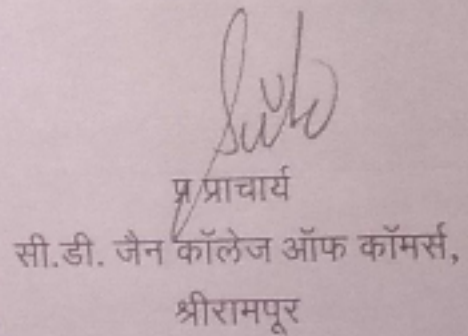 प्र प्राचार्य
सी.डी. जैन कॉलेज ऑफ कॉमर्स,
श्रीरामपूर